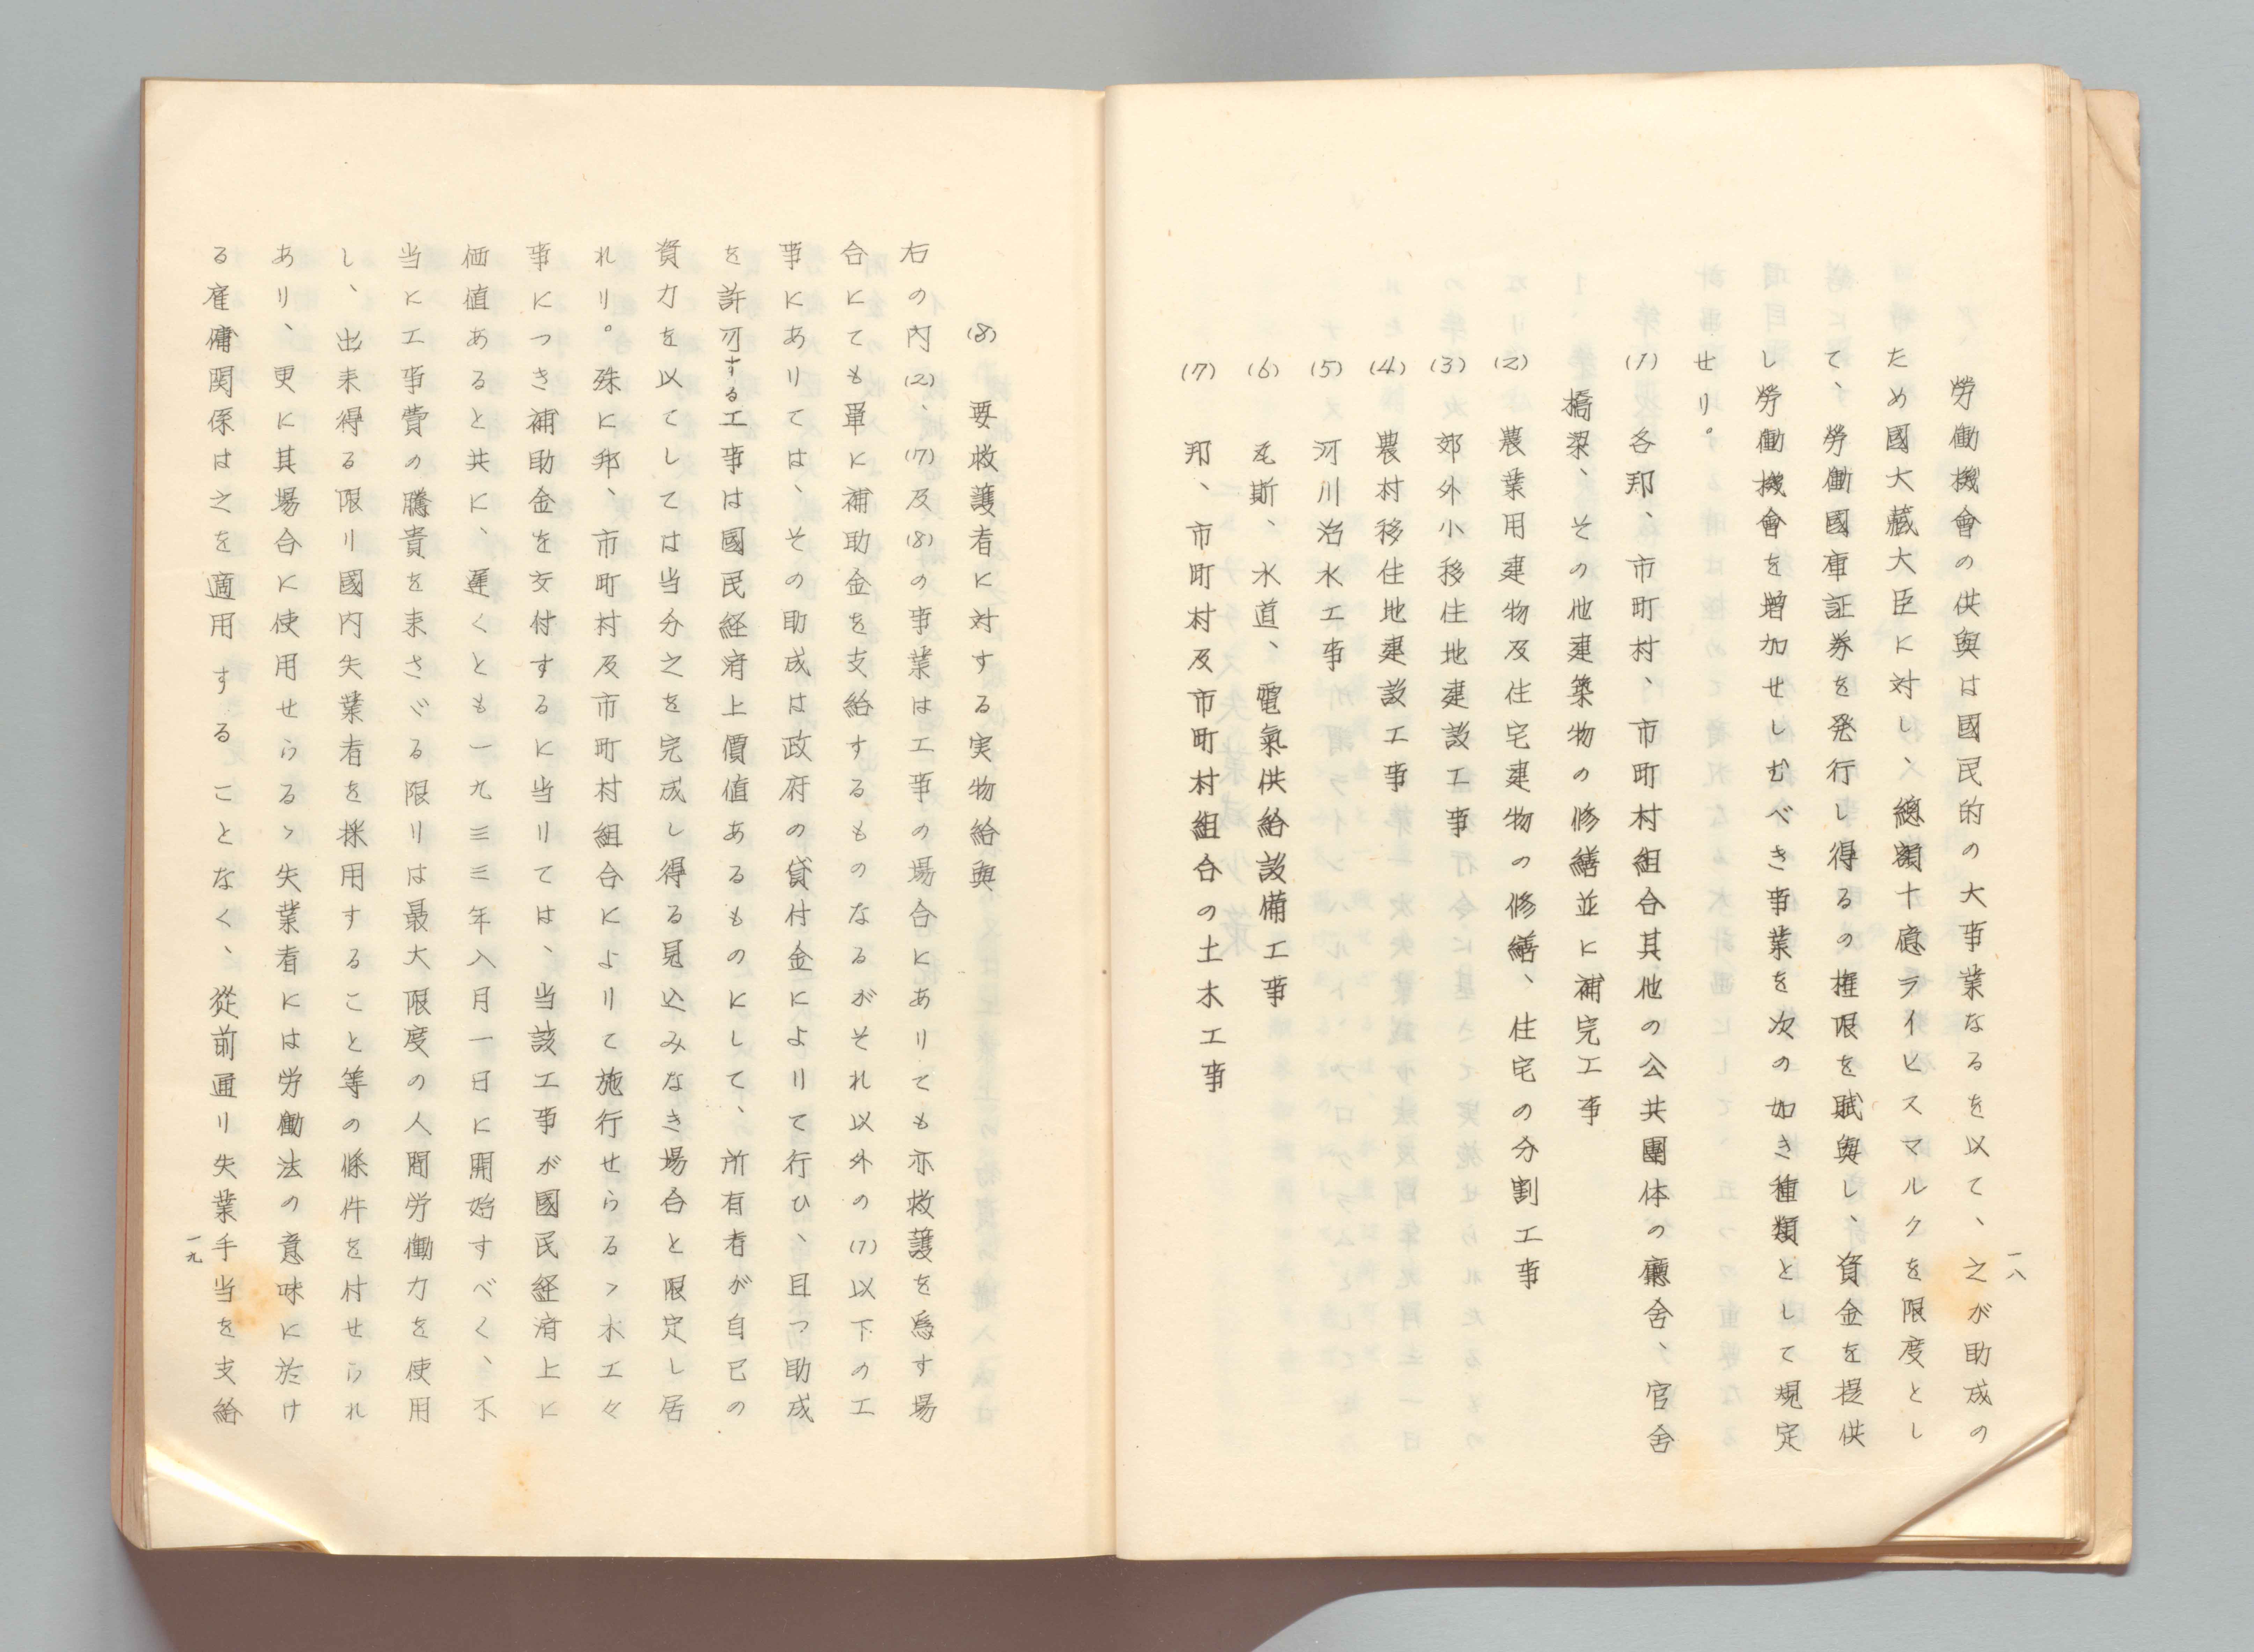 一八
勞働機會の供與は國民的の大事業なるを以て、之が助成の
ため國大藏大臣に対し、總額十億ライヒスマルクを限度とし
て、勞働國庫証券を発行し得るの権限を賦與し、資金を提供
し勞働機會を増加せしむべき事業を次の如き種類として規定
せり。
(1) 各邦、市町村、市町村組合其他の公共團体の廳舍、官舍
橋梁、その他建築物の修繕並に補完工事
(2) 農業用建物及住宅建物の修繕、住宅の分割工事
(3) 郊外小移住地建設工事
(4) 農村移住地建設工事
(5) 河川治水工事
(6) 瓦斯、水道、電氣供給設備工事
(7) 邦、市町村及市町村組合の土木工事
(8) 要救護者に対する実物給與
右の內(2)、(7)及(8)の事業は工事の場合にありても亦救護を爲す場
合にても單に補助金を支給するものなるがそれ以外の(1)以下の工
事にありては、その助成は政府の貸付金によりて行ひ、且つ助成
を許可する工事は國民経済上價値あるものにして、所有者が自己の
資力を以てしては当分之を完成し得る見込みなき場合と限定し居
れり。殊に邦、市町村及市町村組合によりて施行せらるゝ木工々
事につき補助金を交付するに当りては、当該工事が國民経済上に
価値あると共に、遅くとも一九三三年八月一日に開始すべく、不
当に工事費の騰貴を来さゞる限りは最大限度の人間労働力を使用
し、出来得る限り國内失業者を採用すること等の條件を村せられ
あり、更に其場合に使用せらるゝ失業者には労働法の意味に於け
る雇傭関係は之を適用することなく、從前通り失業手当を支給
一九